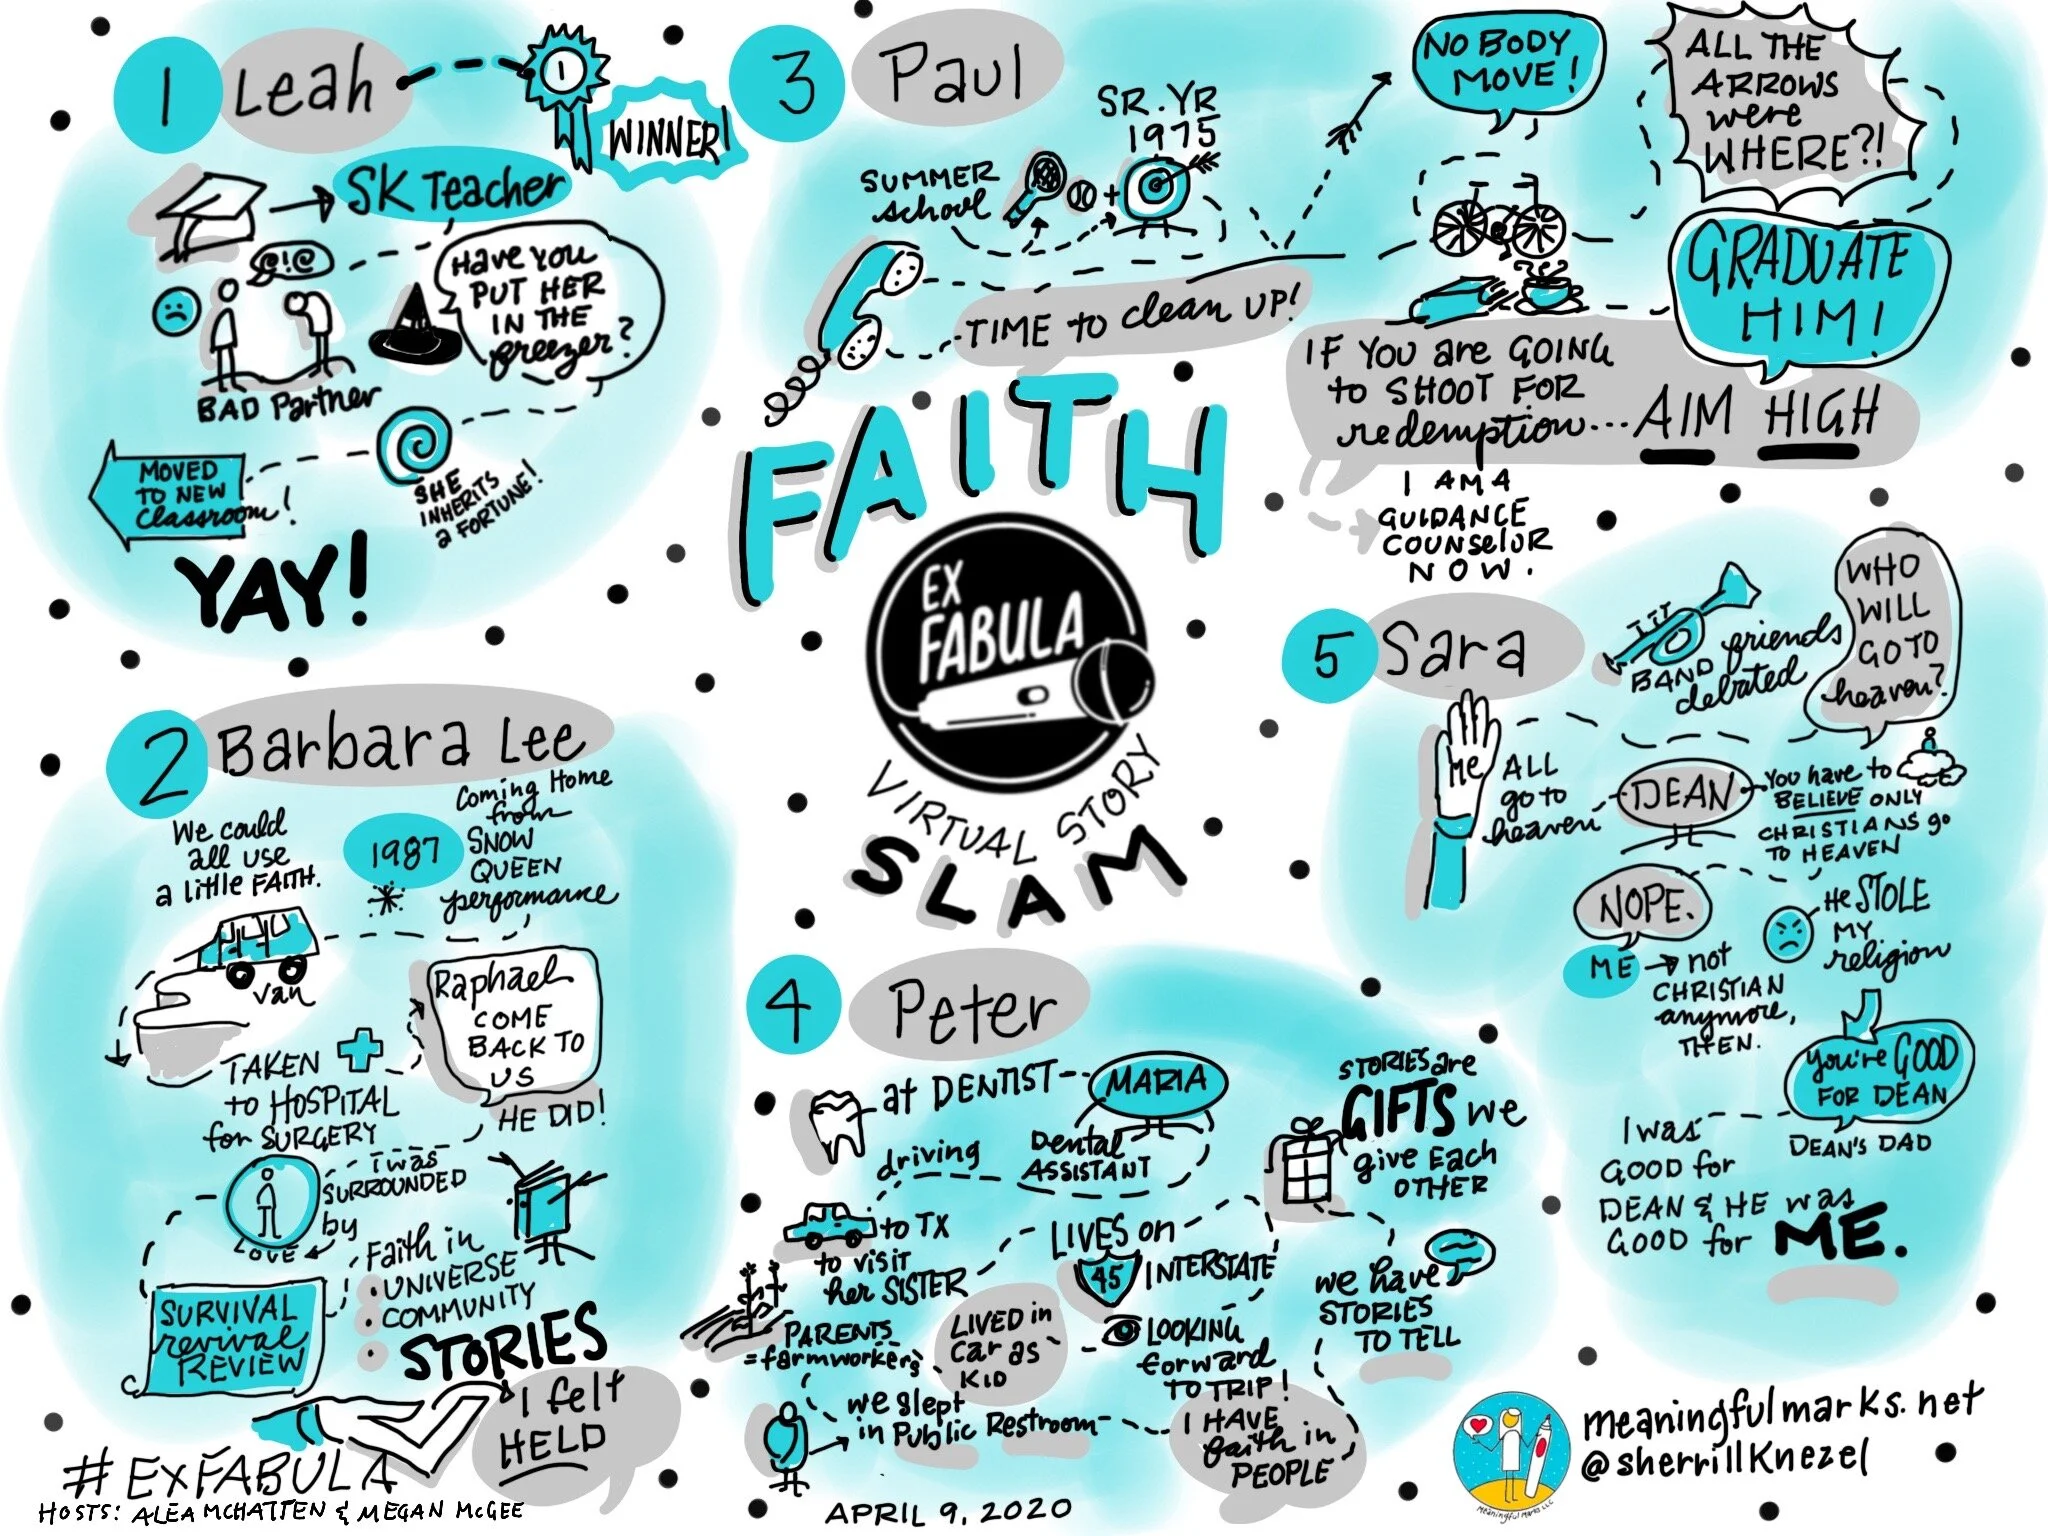 1 Leah
1
WINNER!
SK Teacher
@!@
Have you
PUT HER
IN THE
freezer?
BAD Partner
SHE
INHERITS
a FORTUNE!
MOVED
TO NEW
classroom!
YAY!
2 Barbara Lee
We could
all use
a little FAITH.
1987
Coming Home
from
SNOW
QUEEN
performance
van
TAKEN
to HOSPITAL
for SURGERY
Raphael
COME
BACK TO
US
HE DID!
I was
SURROUNDED
by
LOVE
Faith in
• UNIVERSE
• COMMUNITY
• STORIES
SURVIVAL
revival
REVIEW
I felt
HELD
#EXFABULA
HOSTS: ALEA MCHATTEN & MEGAN McGEE
3 Paul
SR. YR
1975
SUMMER
school
+
TIME to clean UP!
NO BODY
MOVE!
ALL THE
ARROWS
were
WHERE?!
GRADUATE
HIM!
IF YOU are GOING
to SHOOT FOR
redemption... AIM HIGH
I AM A
GUIDANCE
COUNSELOR
NOW.
FAITH
EX
FABULA
VIRTUAL STORY
SLAM
4 Peter
at DENTIST
MARIA
Dental
ASSISTANT
driving
to TX
to visit
her SISTER
PARENTS
=farmworkers
LIVED in
car as
KID
we slept
in Public Restroom
LIVES on
45 INTERSTATE
LOOKING
forward
TO TRIP!
I HAVE
faith in
PEOPLE
STORIES are
GIFTS we
give EACH
OTHER
we have
STORIES
TO TELL
APRIL 9, 2020
5 Sara
BAND friends
debated
WHO
WILL
GO TO
heaven?
Me
ALL
go to
heaven
DEAN
You have to
BELIEVE ONLY
CHRISTIANS go
TO HEAVEN
NOPE.
ME → not
CHRISTIAN
anymore,
THEN.
He STOLE
MY
religion
You're GOOD
FOR DEAN
DEAN'S DAD
I was
GOOD for
DEAN & HE was
GOOD for ME.
meaningfulmarks.net
@sherrillKnezel
MeaningfulMarks LLC